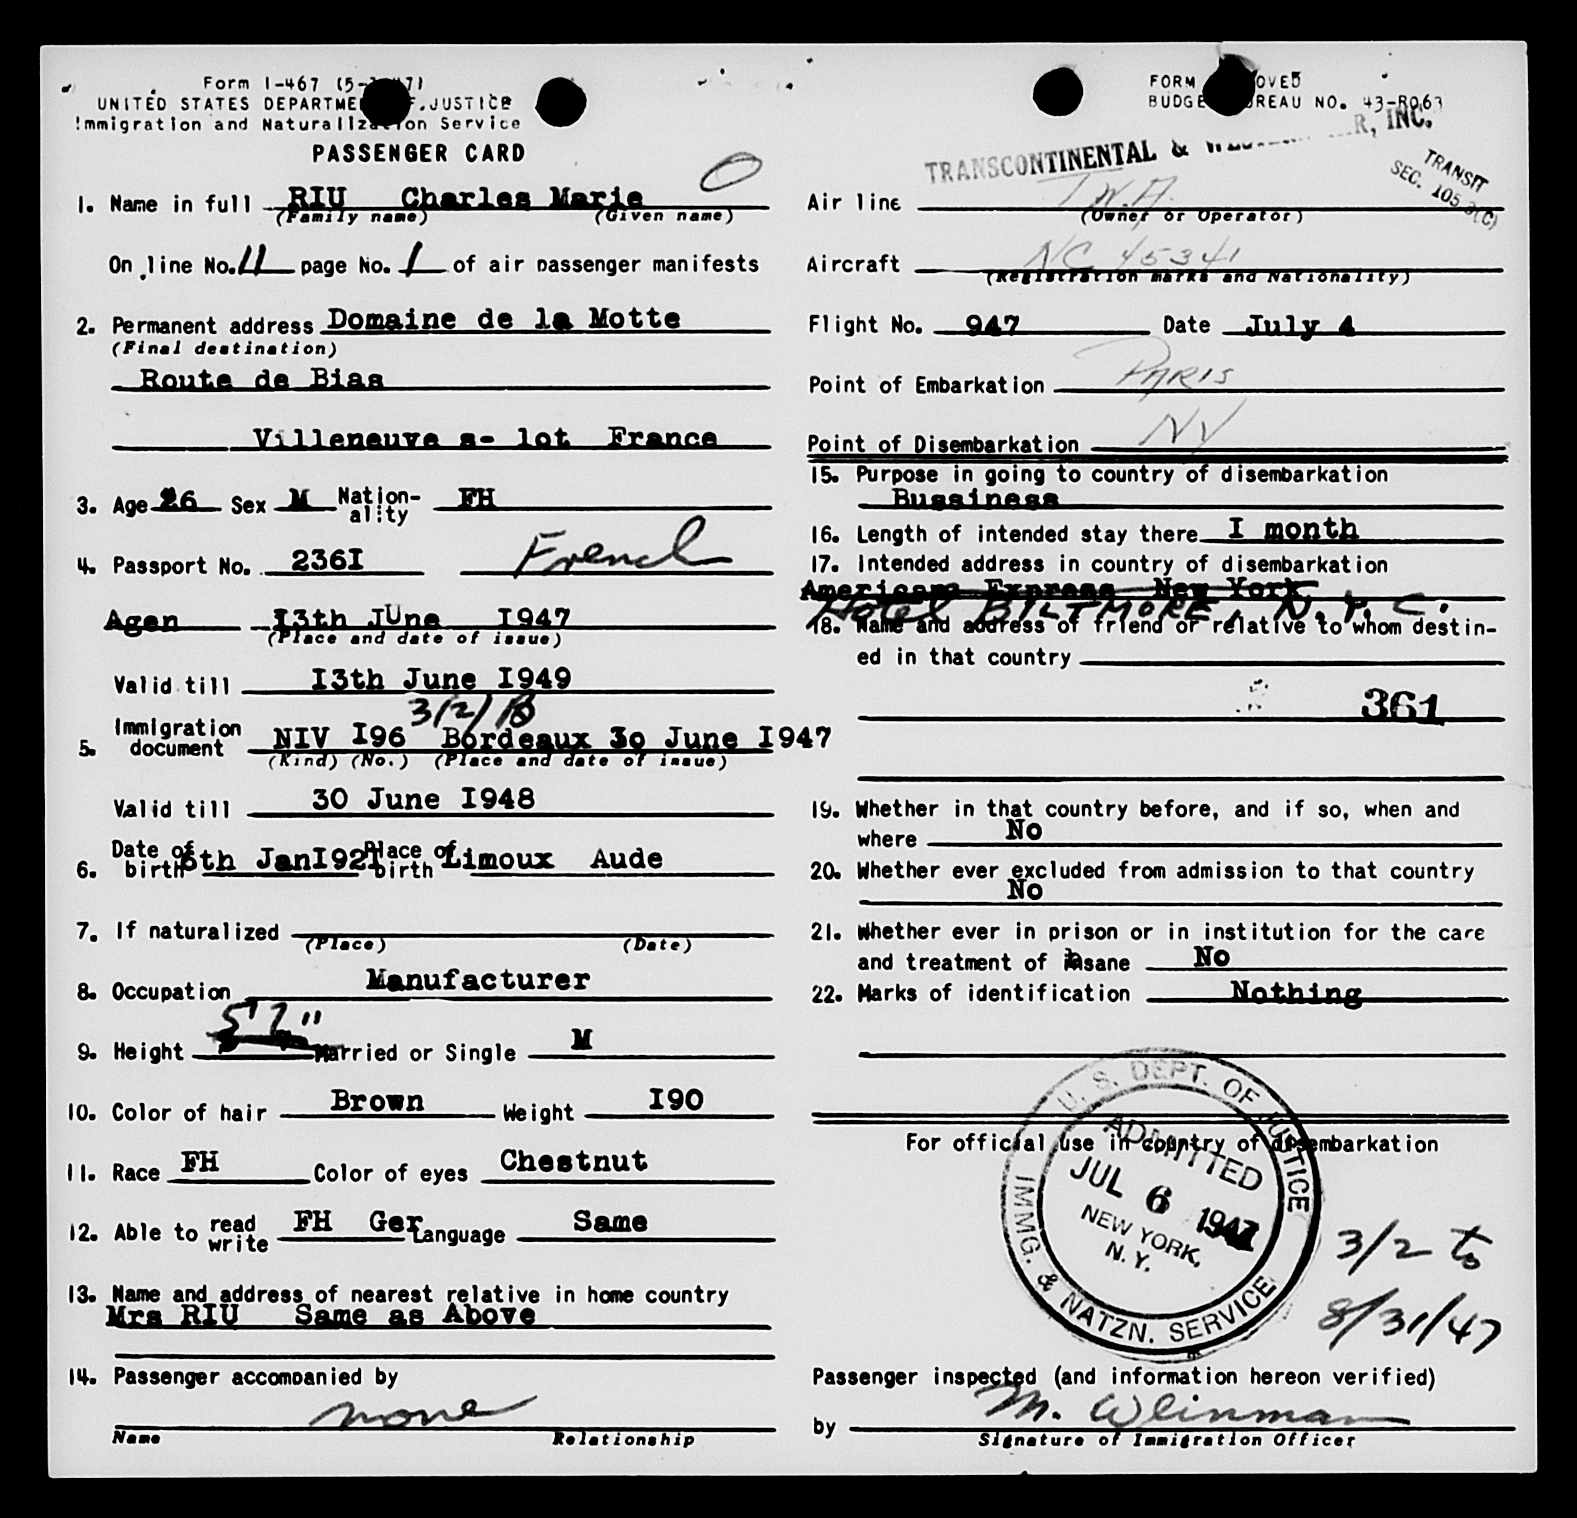 Form I-467 (5-
UNITED STATES DEPARTMENT OF JUSTICE
Immigration and Naturalization Service
PASSENGER CARD
0
1. Name in full RIU Charles Marie
(Family name) (Given name)
On line No. 11 page No. 1 of air passenger manifests
2. Permanent address Domaine de la Motte
(Final destination)
Route de Bias
Villeneuve s- lot France
3. Age 26 Sex M Nation-ality FH
4. Passport No. 236I French
Agen I3th JUne I947
(Place and date of issue)
Valid till I3th June I949
3/2/B
5. Immigration document NIV I96 Bordeaux 3o June I947
(Kind) (No.) (Place and date of issue)
Valid till 30 June I948
6. Date of birth 6th JanI92I Place of birth Limoux Aude
7. If naturalized
(Place) (Date)
8. Occupation Manufacturer
9. Height 5'7" Married or Single M
10. Color of hair Brown Weight I90
11. Race FH Color of eyes Chestnut
12. Able to read write FH Ger Language Same
13. Name and address of nearest relative in home country
Mrs RIU Same as Above
14. Passenger accompanied by
none
Name Relationship
FORM APPROVED
BUDGET BUREAU NO. 43-R063
TRANSCONTINENTAL & WESTERN AIR, INC.
TRANSIT
SEC. 105.3(C)
Air line T.W.A.
(Owner or Operator)
Aircraft NC 45341
(Registration marks and Nationality)
Flight No. 947 Date July 4
Point of Embarkation PARIS
Point of Disembarkation NY
15. Purpose in going to country of disembarkation
Bussiness
16. Length of intended stay there I month
17. Intended address in country of disembarkation
American Express New York
Hotel BILTMORE, N.Y.C.
18. Name and address of friend or relative to whom destin-
ed in that country
361
19. Whether in that country before, and if so, when and
where No
20. Whether ever excluded from admission to that country
No
21. Whether ever in prison or in institution for the care
and treatment of insane No
22. Marks of identification Nothing
For official use in country of disembarkation
U. S. DEPT. OF JUSTICE
ADMITTED
JUL 6 1947
NEW YORK,
N. Y.
IMMG. & NATZN. SERVICE
3/2 to
8/31/47
Passenger inspected (and information hereon verified)
by M. Weinman
Signature of Immigration Officer